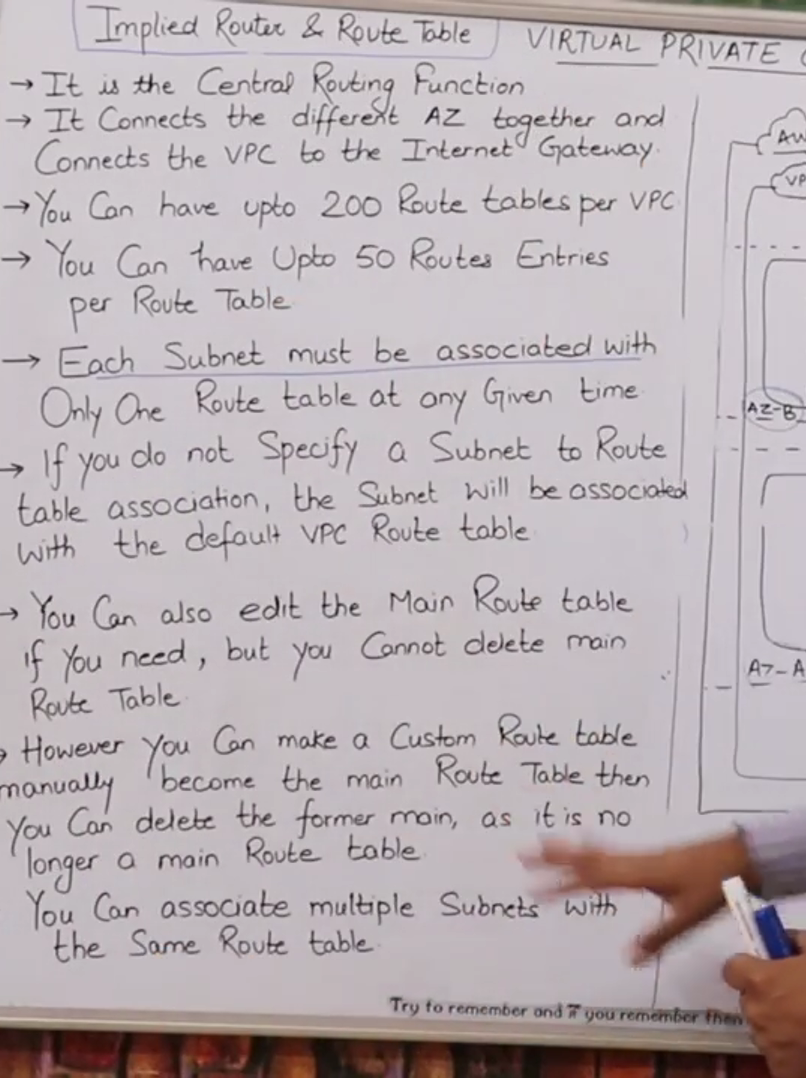 Implied Router & Route Table
VIRTUAL PRIVATE
→ It is the Central Routing Function
→ It Connects the different AZ together and
Connects the VPC to the Internet Gateway.
→ You Can have upto 200 Route tables per VPC
→ You Can have Upto 50 Routes Entries
per Route Table
→ Each Subnet must be associated with
Only One Route table at any Given time
→ If you do not Specify a Subnet to Route
table association, the Subnet will be associated
with the default VPC Route table
→ You Can also edit the Main Route table
if You need, but you Cannot delete main
Route Table.
→ However you Can make a Custom Route table
manually become the main Route Table then
you Can delete the former main, as it is no
longer a main Route table.
You Can associate multiple Subnets with
the Same Route table.
AZ-B
AZ-A
Try to remember and if you remember then